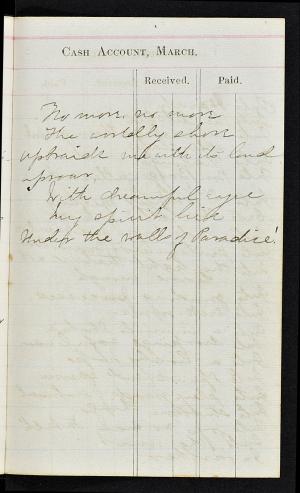 CASH ACCOUNT, MARCH.
Received. Paid.
No more, no more
The worldly shore
upbraids me with its loud
uproar
With dreamful eyes
my spirit lies
Under the walls of Paradise!